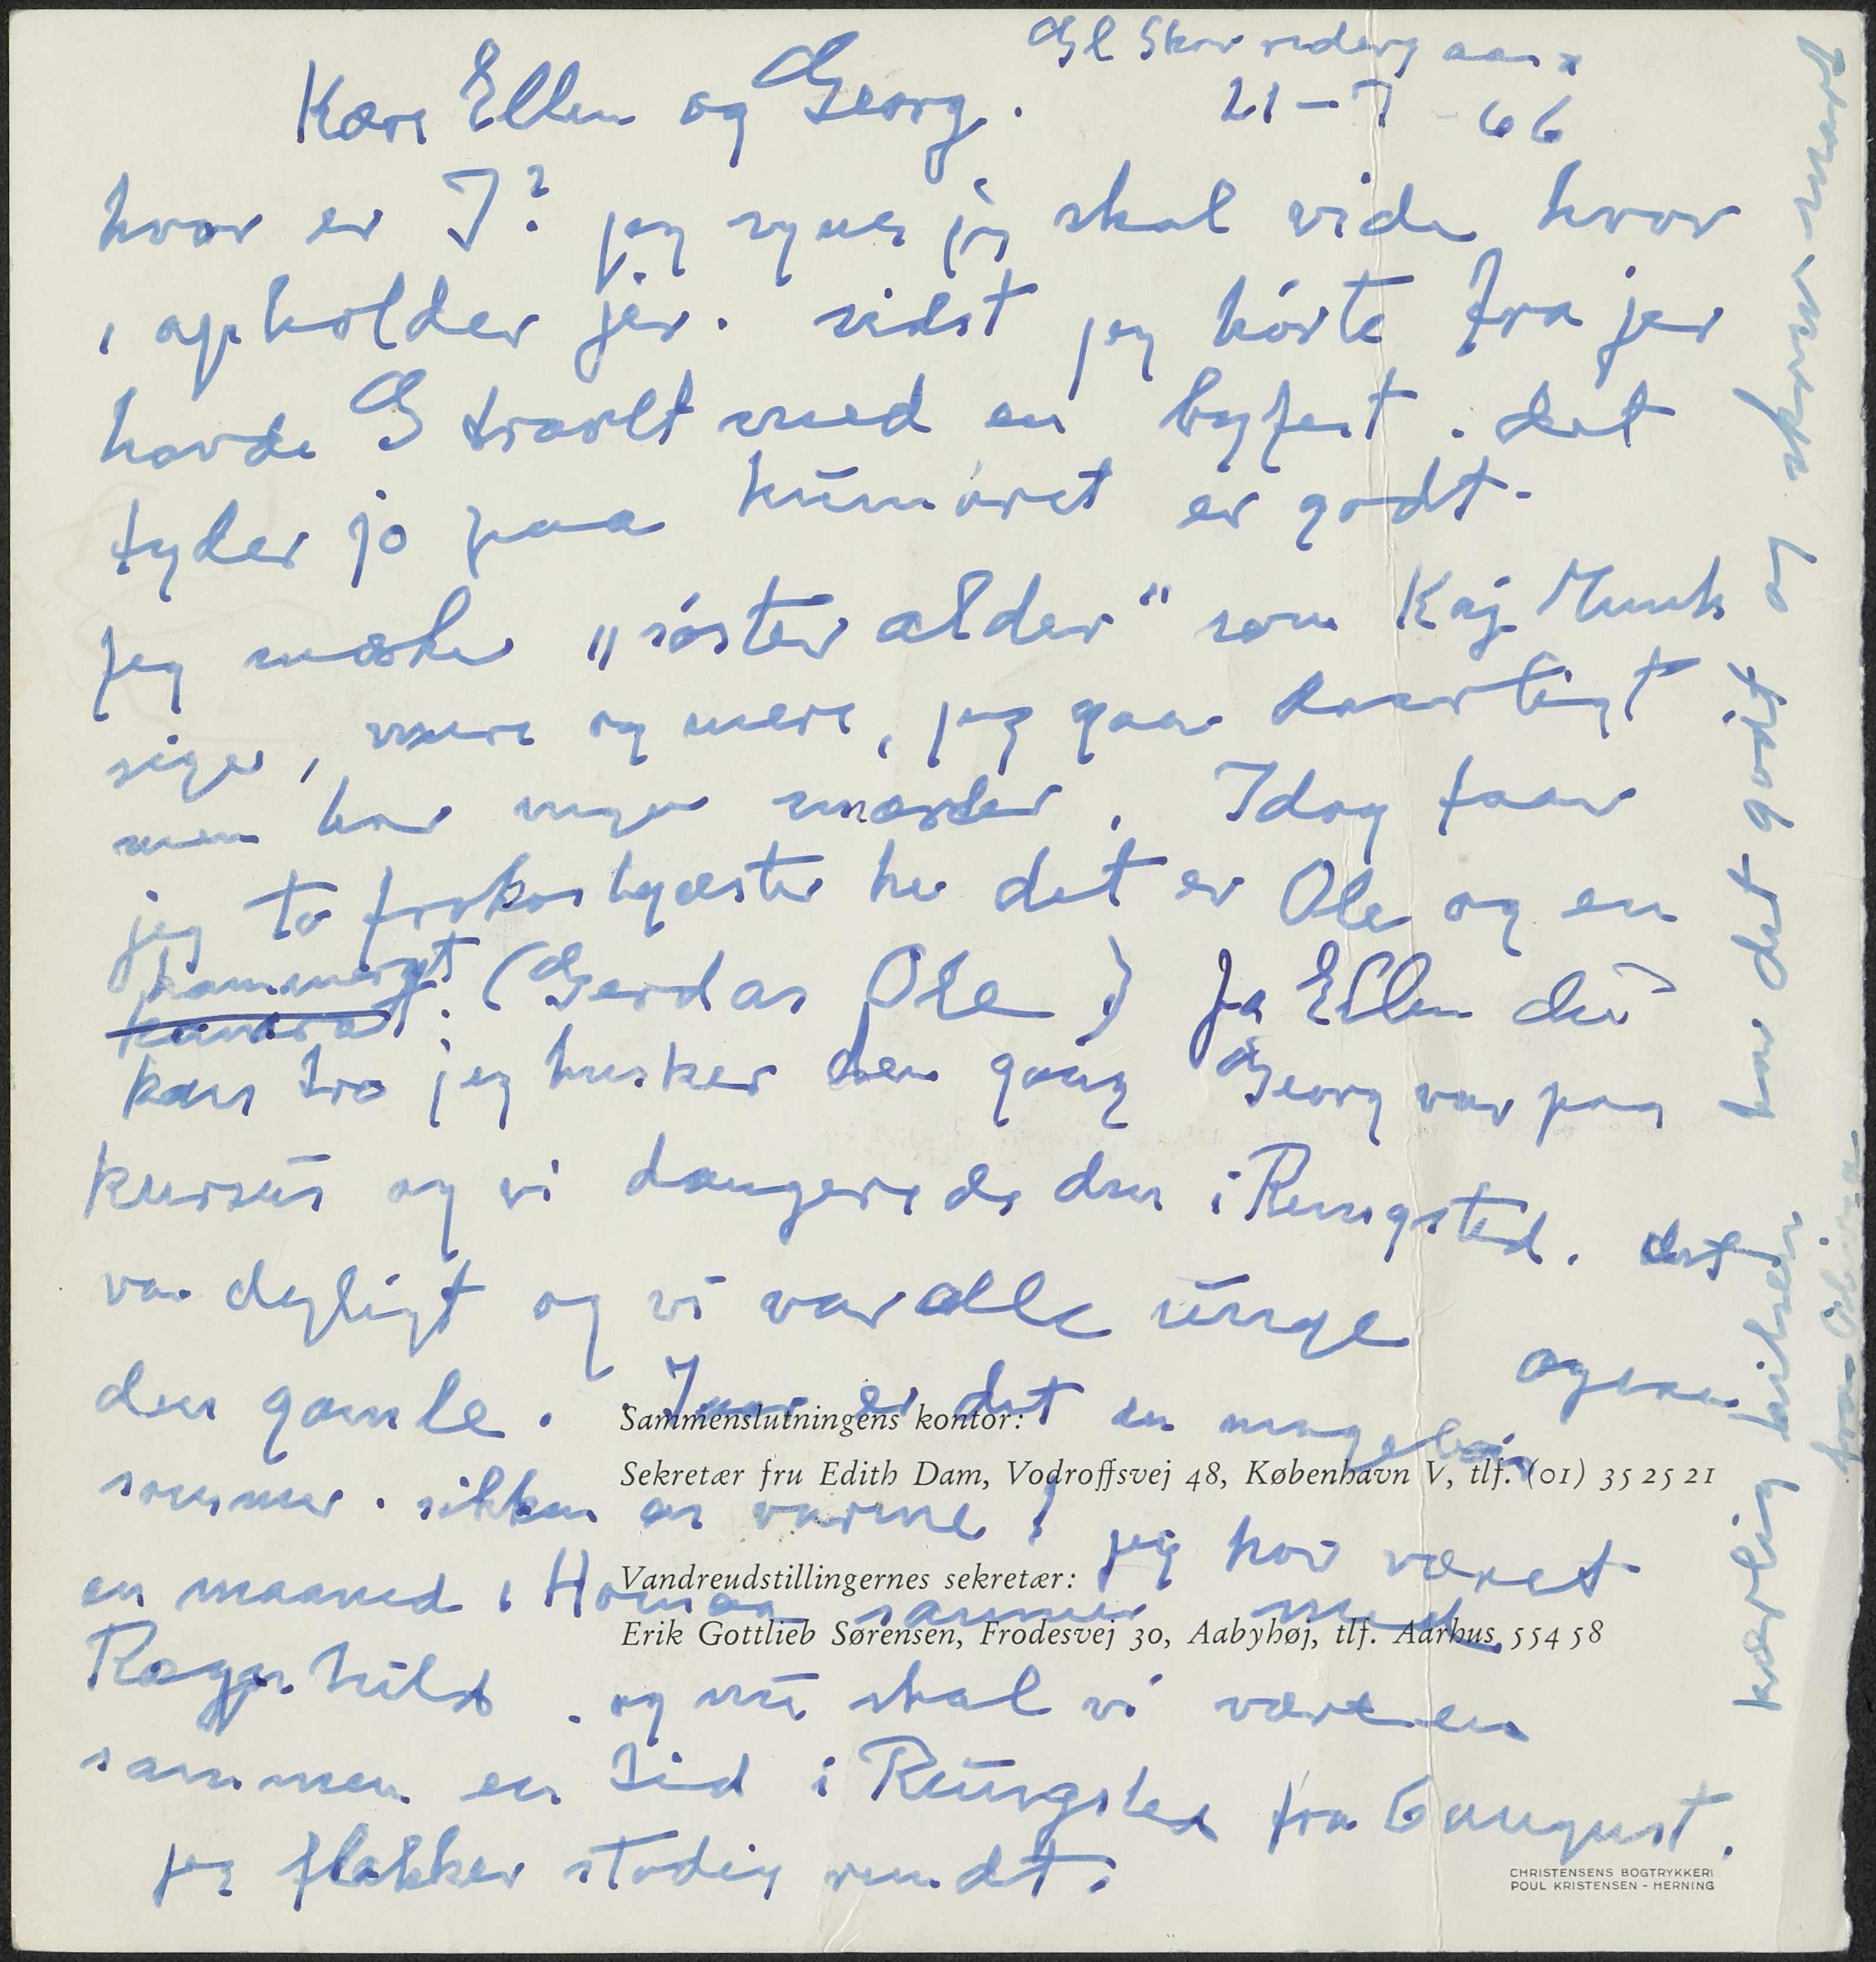 Gl Skovridergaard
Kære Ellen og Georg.
21-7-66
hvor er I? jeg synes jeg skal vide hvor
i opholder jer. sidst jeg hørte fra jer
havde G travlt med en byfest. det
tyder jo paa humøret er godt.
Jeg mosler „søster alder" som Kaj Munk
siger, mere og mere, jeg gaar daarligt
men har ingen smerter. Idag faar
jeg to frokostgæster her det er Ole og en
kammerat
kamrat. (Gerdas Ole) Ja Ellen du
kan tro jeg husker den gang Georg var paa
kursus og vi dangerede den i Rungsted. det
var dejligt og vi var alle unge ogsaa
den gamle. Iaar er det en
sommer. sikken en varme! jeg har været
en maaned i Hornbæk sammen med
Ragnhild. og nu skal vi være en
sammen en tid i Rungsted fra 6 august.
jeg flakker stadig rundt.
har det godt og skriv snart
kærlig hilsen
fra
Sammenslutningens kontor:
Sekretær fru Edith Dam, Vodroffsvej 48, København V, tlf. (01) 35 25 21
Vandreudstillingernes sekretær:
Erik Gottlieb Sørensen, Frodesvej 30, Aabyhøj, tlf. Aarhus 554 58
CHRISTENSENS BOGTRYKKERI
POUL KRISTENSEN - HERNING